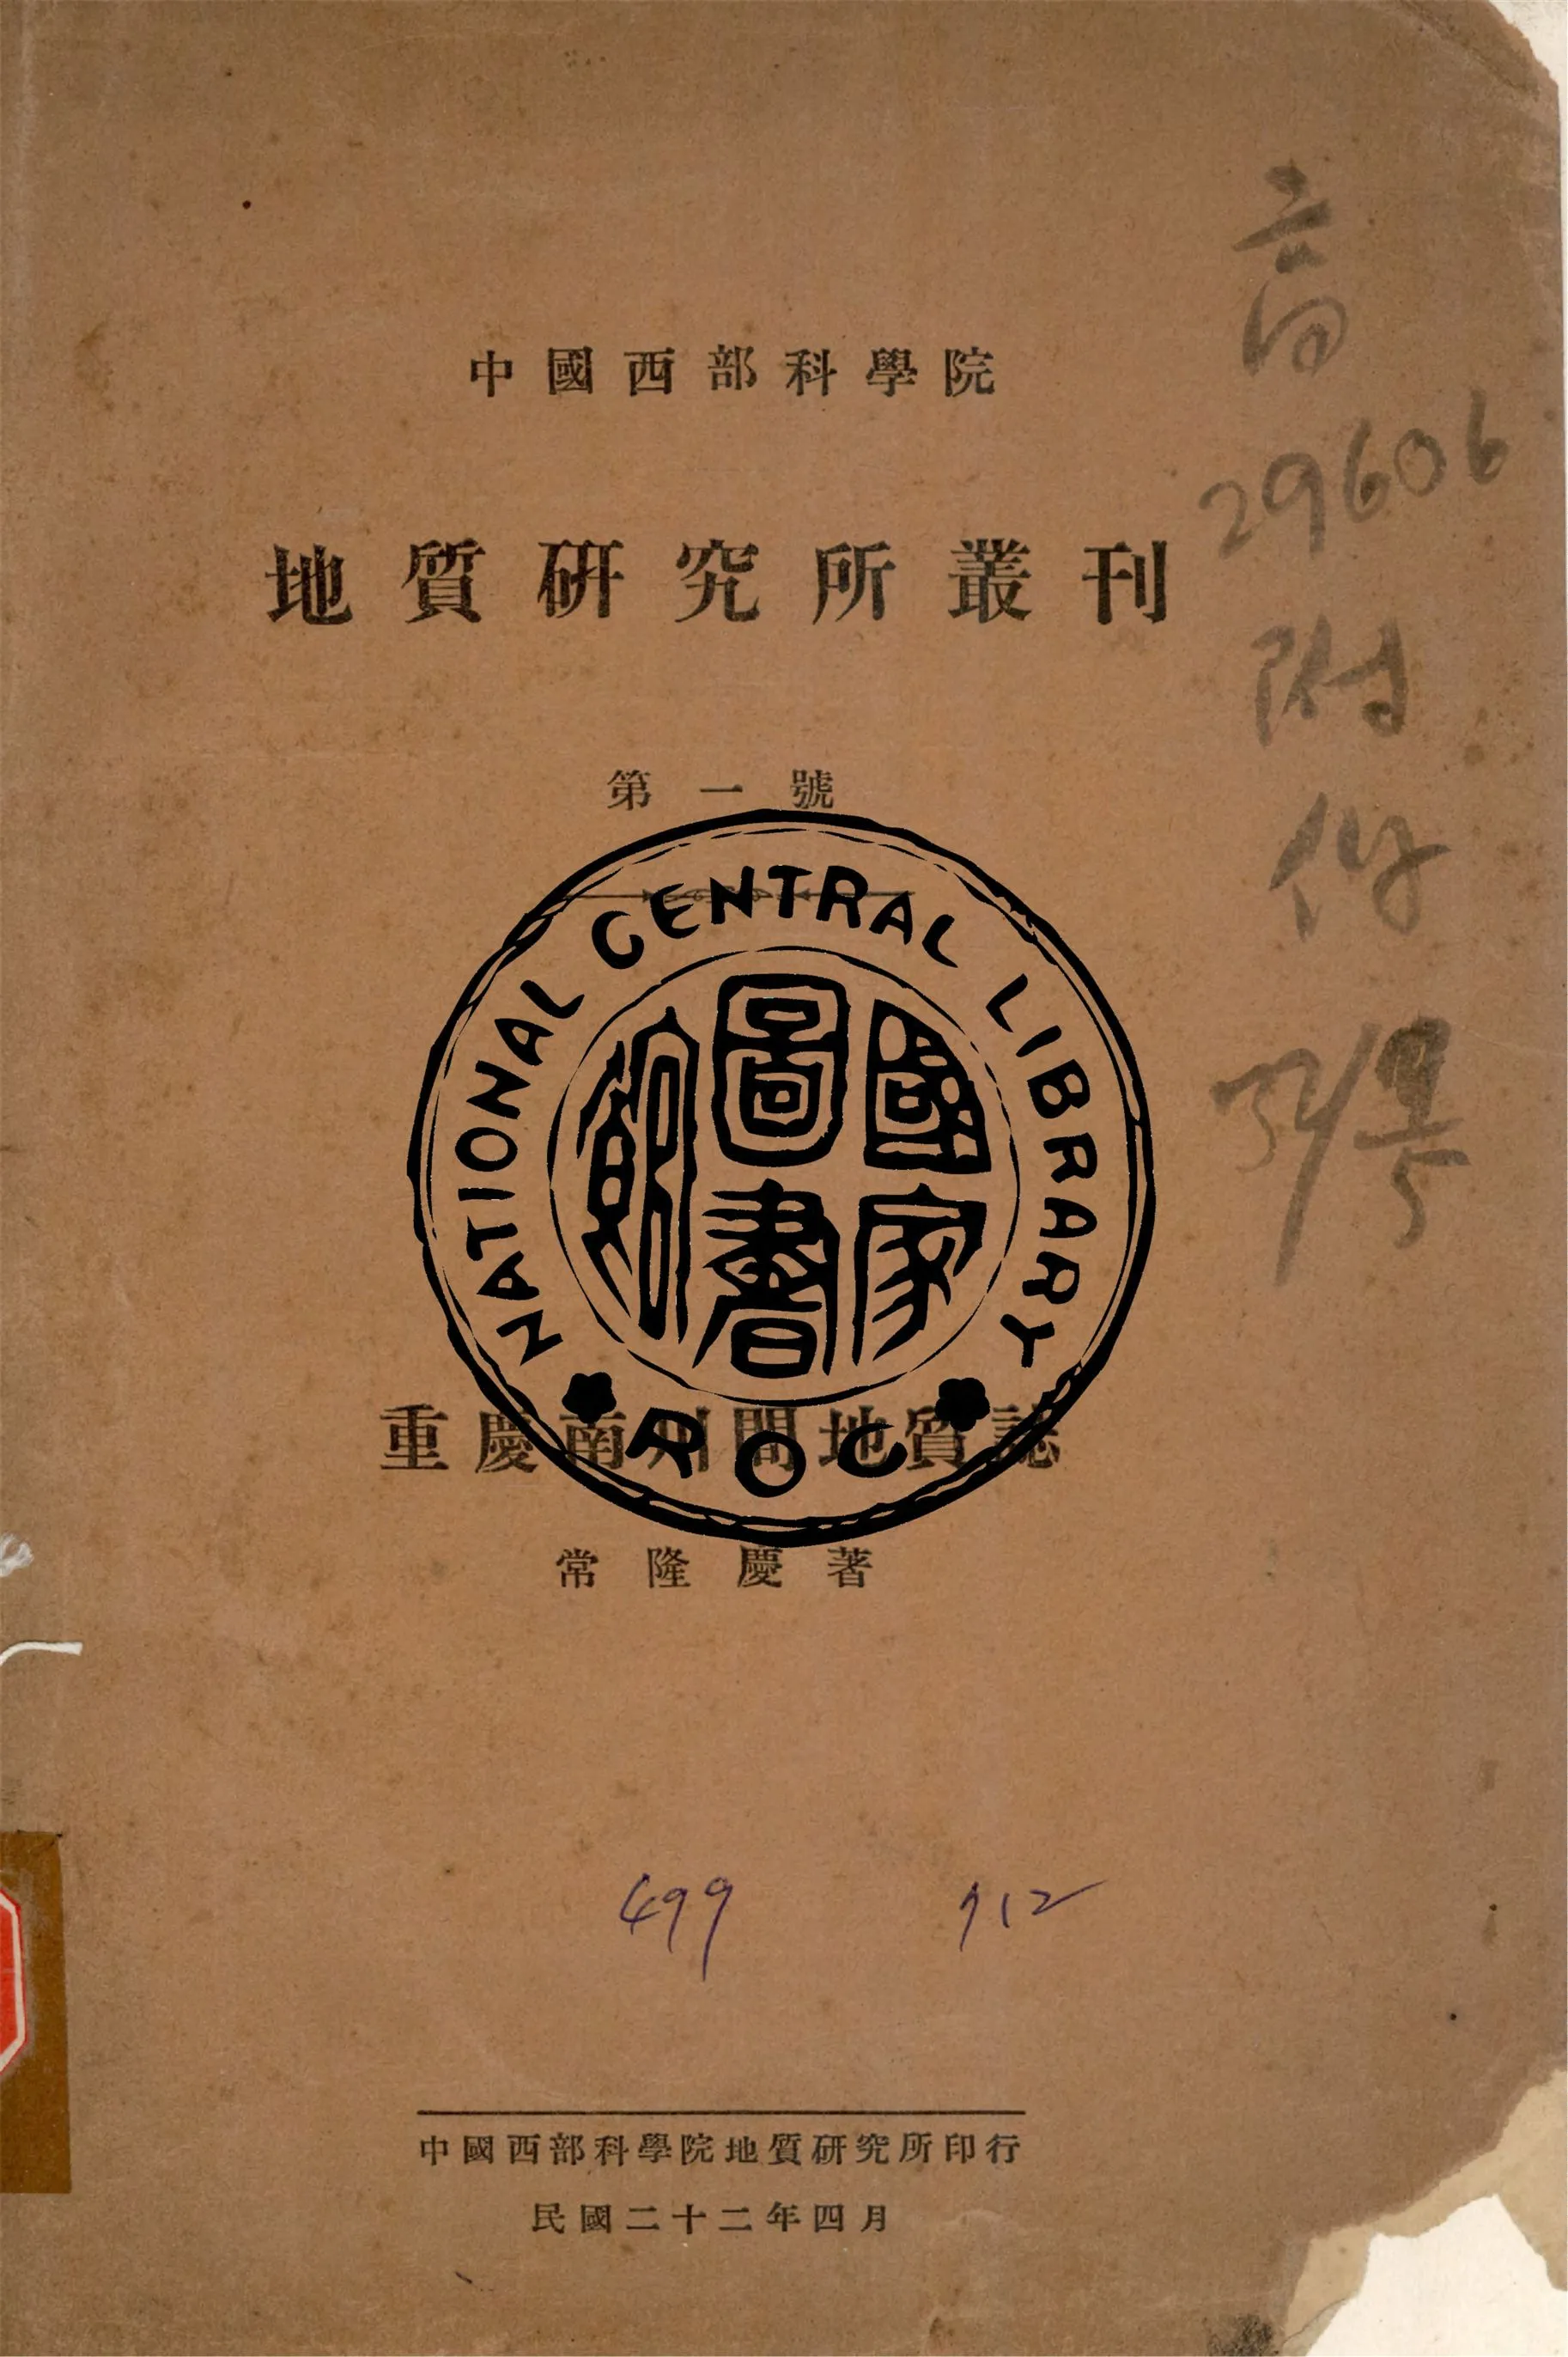 中國西部科學院
地質研究所叢刊
第一號
重慶南川間地質誌
常隆慶著
NATIONAL CENTRAL LIBRARY
國家圖書館
ROC
29606
附
件
499
712
中國西部科學院地質研究所印行
民國二十二年四月